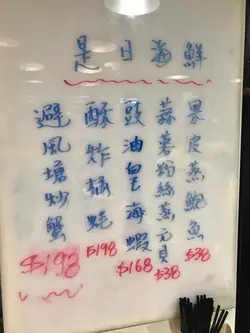 是日海鮮
果皮蒸鮑魚
$38
蒜蓉粉絲蒸元貝
$38
豉油皇海蝦
$168
酥炸桶蠔
$198
避風塘炒蟹
$198